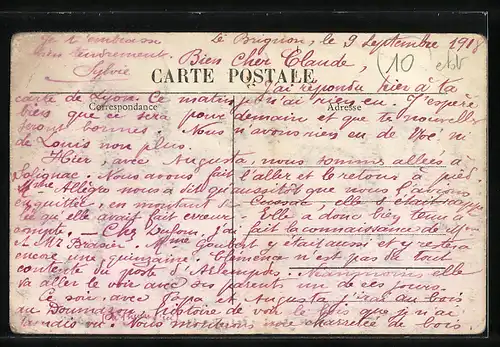 Je t'embrasse
bien tendrement.
Sylvie
Le Brignon, le 9 Septembre 1918
10
Bien Cher Claude,
CARTE POSTALE
J'ai répondu hier à ta
Correspondance
Adresse
carte de Lyon. Ce matin je n'ai rien eu. J'espère
bien que ce sera pour demain et que tes nouvelles
seront bonnes. Nous n'avons rien eu de Noé ni
de Louis non plus.
Hier, avec Augusta, nous sommes allées à
Solignac. Nous avons fait l'aller et le retour à pied.
Mme Allègre nous a dit qu'aussitôt que nous l'avions
quittée, en montant
Cussac, elle s'était
ce qu'elle avait fait erreur. Elle a donc bien tenu
compte. — Chez Dufour, j'ai fait la connaissance de Mme
et Mr Brasier. Mme Goubert y était aussi et y restera
encore une quinzaine. Clémence n'est pas du tout
contente du poste d'Alempdes. Néanmoins elle
va aller le voir avec ses parents un de ces jours.
Ce soir, avec Papa et Augusta j'irai au bois
au histoire de voir le bois que je n'ai
jamais vu. Nous mènerons une charretée de bois.